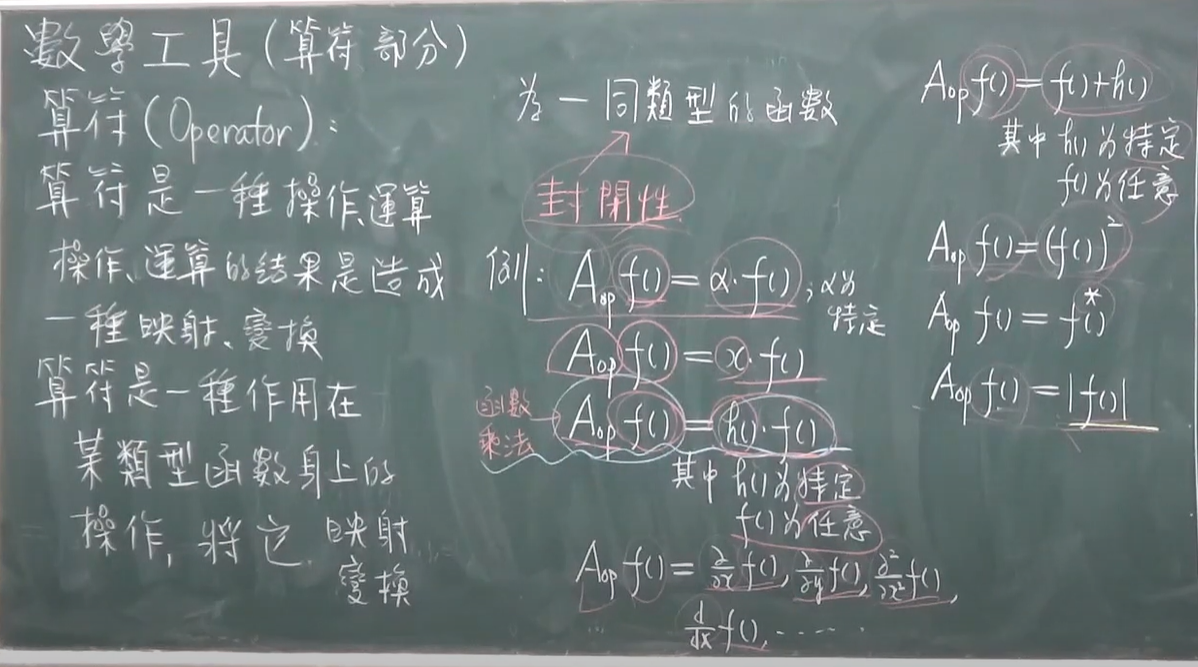 數學工具(算符部分)
算符(Operator):
算符是一種操作、運算
操作、運算的結果是造成
一種映射、變換
算符是一種作用在
某類型函數身上的
操作,將它 映射
變換
為一同類型的函數
封閉性
例: Aop f() = α·f() ; α為
特定
Aop f() = x·f()
函數
乘法
Aop f() = h()·f()
其中 h()為特定
f()為任意
Aop f() = ∂/∂x f(), ∂/∂y f(), ∂²/∂x² f(),
d/dx f(), ·····
Aop f() = f()+h()
其中 h()為特定
f()為任意
Aop f() = (f())²
Aop f() = f()*
Aop f() = |f()|